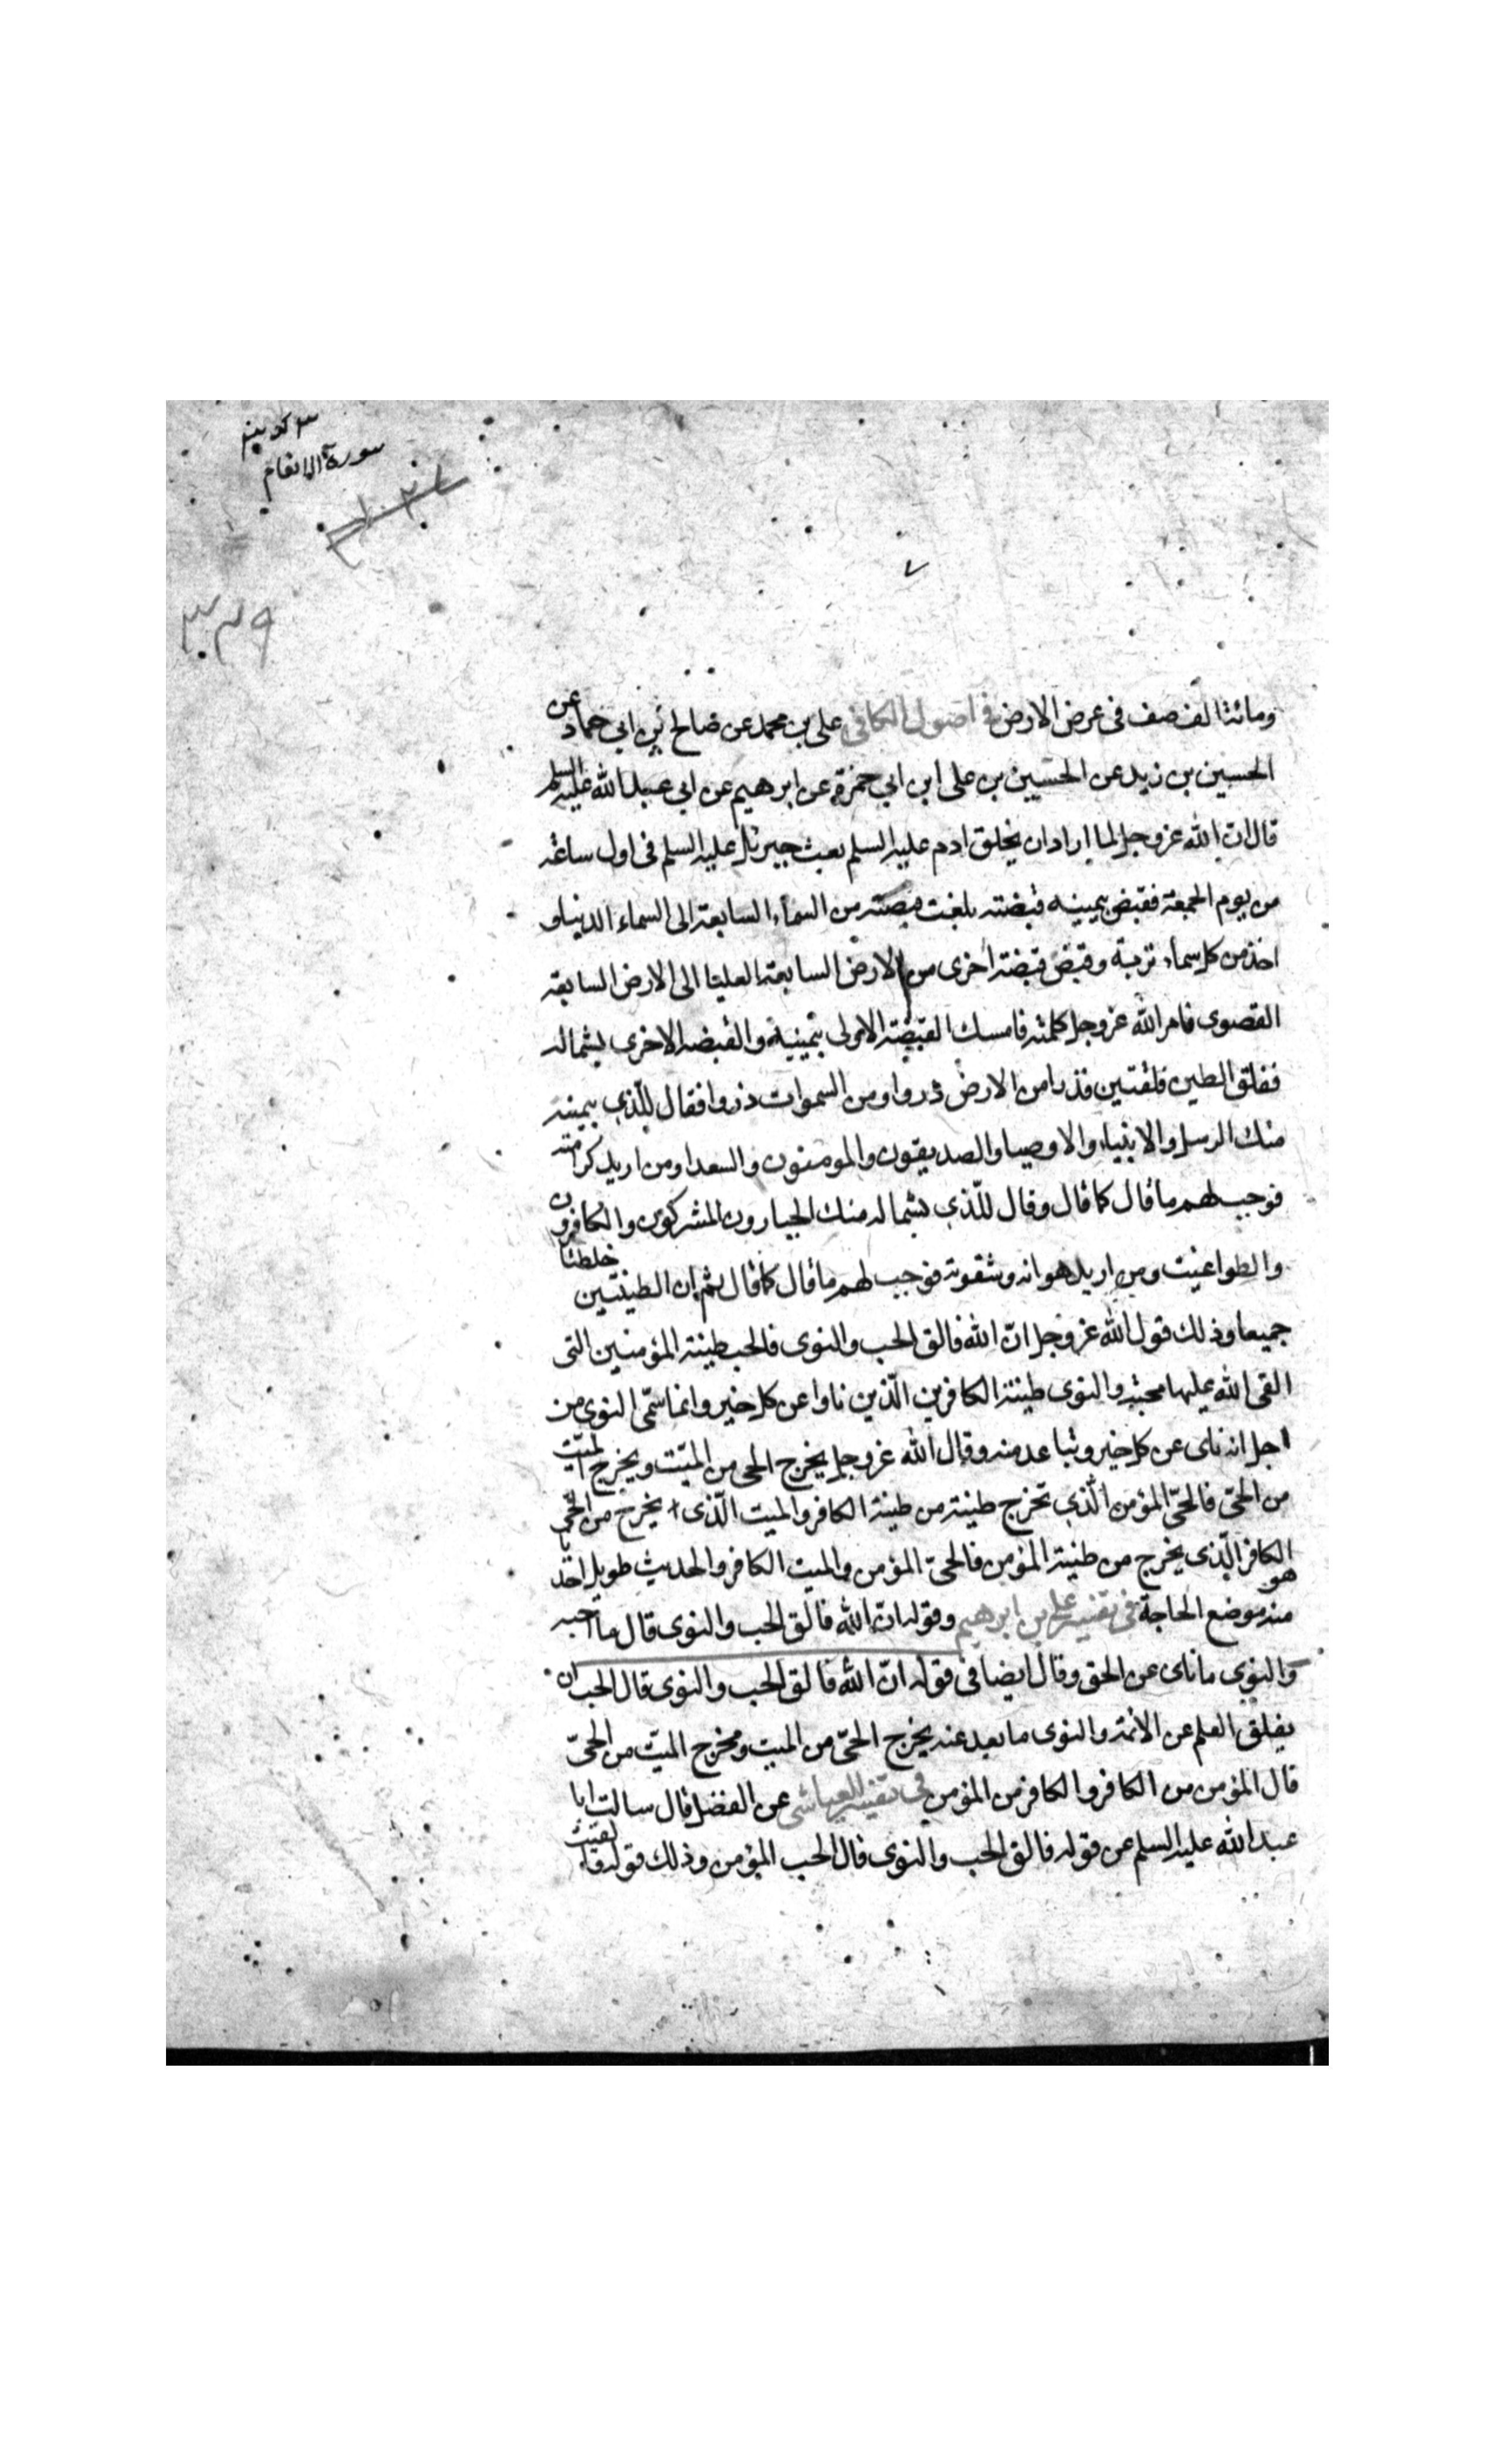 سورة الانعام
٣٣٩
٧
ومائتا الف صف فى عرض الارض فى اصول الكافى على بن محمد عن صالح بن ابى حماد عن
الحسين بن زيد عن الحسين بن على ابن ابى حمزة عن ابرهيم عن ابى عبد الله عليه السلم
قال ان الله عز وجل لما اراد ان يخلق ادم عليه السلم بعث جبرئيل عليه السلم فى اول ساعة
من يوم الجمعة فقبض بيمينه قبضته بلغت قبضته من السماء السابعة الى السماء الدنيا و
اخذ من كل سماء تربة وقبض قبضة اخرى من الارض السابعة العليا الى الارض السابعة
القصوى فامر الله عز وجل كلمته فامسك القبضة الاولى بيمينه والقبضه الاخرى بشماله
ففلق الطين فلقتين فذرا من الارض ذروا ومن السموات ذروا فقال للّذى بيمينه
منك الرسل والانبياء والاوصيا والصديقون والمومنون والسعدا ومن اريد كرامته
فوجب لهم ما قال كما قال وقال للّذى بشماله منك الجبارون المشركون والكافرون
والطواغيت ومن اريد هوانه وشقوته فوجب لهم ما قال كما قال ثم ان الطينتين خلطتا
جميعا وذلك قول الله عز وجل انّ الله فالق الحب والنوى فالحب طينة المؤمنين التى
القى الله عليها محبته والنوى طينة الكافرين الّذين ناوا عن كل خير وانما سمّى النوى من
اجل انه ناى عن كل خير وتباعد منه وقال الله عز وجل يخرج الحى من الميّت ويخرج الميّت
من الحىّ فالحىّ المؤمن الّذى تخرج طينته من طينة الكافر والميت الّذى يخرج من الحىّ
هو الكافر الّذى يخرج من طينة المؤمن فالحىّ المؤمن والميت الكافر والحديث طويل اخذنا
منه موضع الحاجة فى تفسير على بن ابرهيم وقوله انّ الله فالق الحب والنوى قال ما احبه
والنوى ما ناى عن الحق وقال ايضا فى قوله انّ الله فالق الحب والنوى قال الحب ان
يفلق العلم عن الائمة والنوى ما بعد عنه يخرج الحىّ من الميت ومخرج الميّت من الحىّ
قال المؤمن من الكافر والكافر من المؤمن فى تفسير العياشى عن المفضل قال سالت ابا
عبد الله عليه السلم عن قوله فالق الحب والنوى قال الحب المؤمن وذلك قوله والقيت